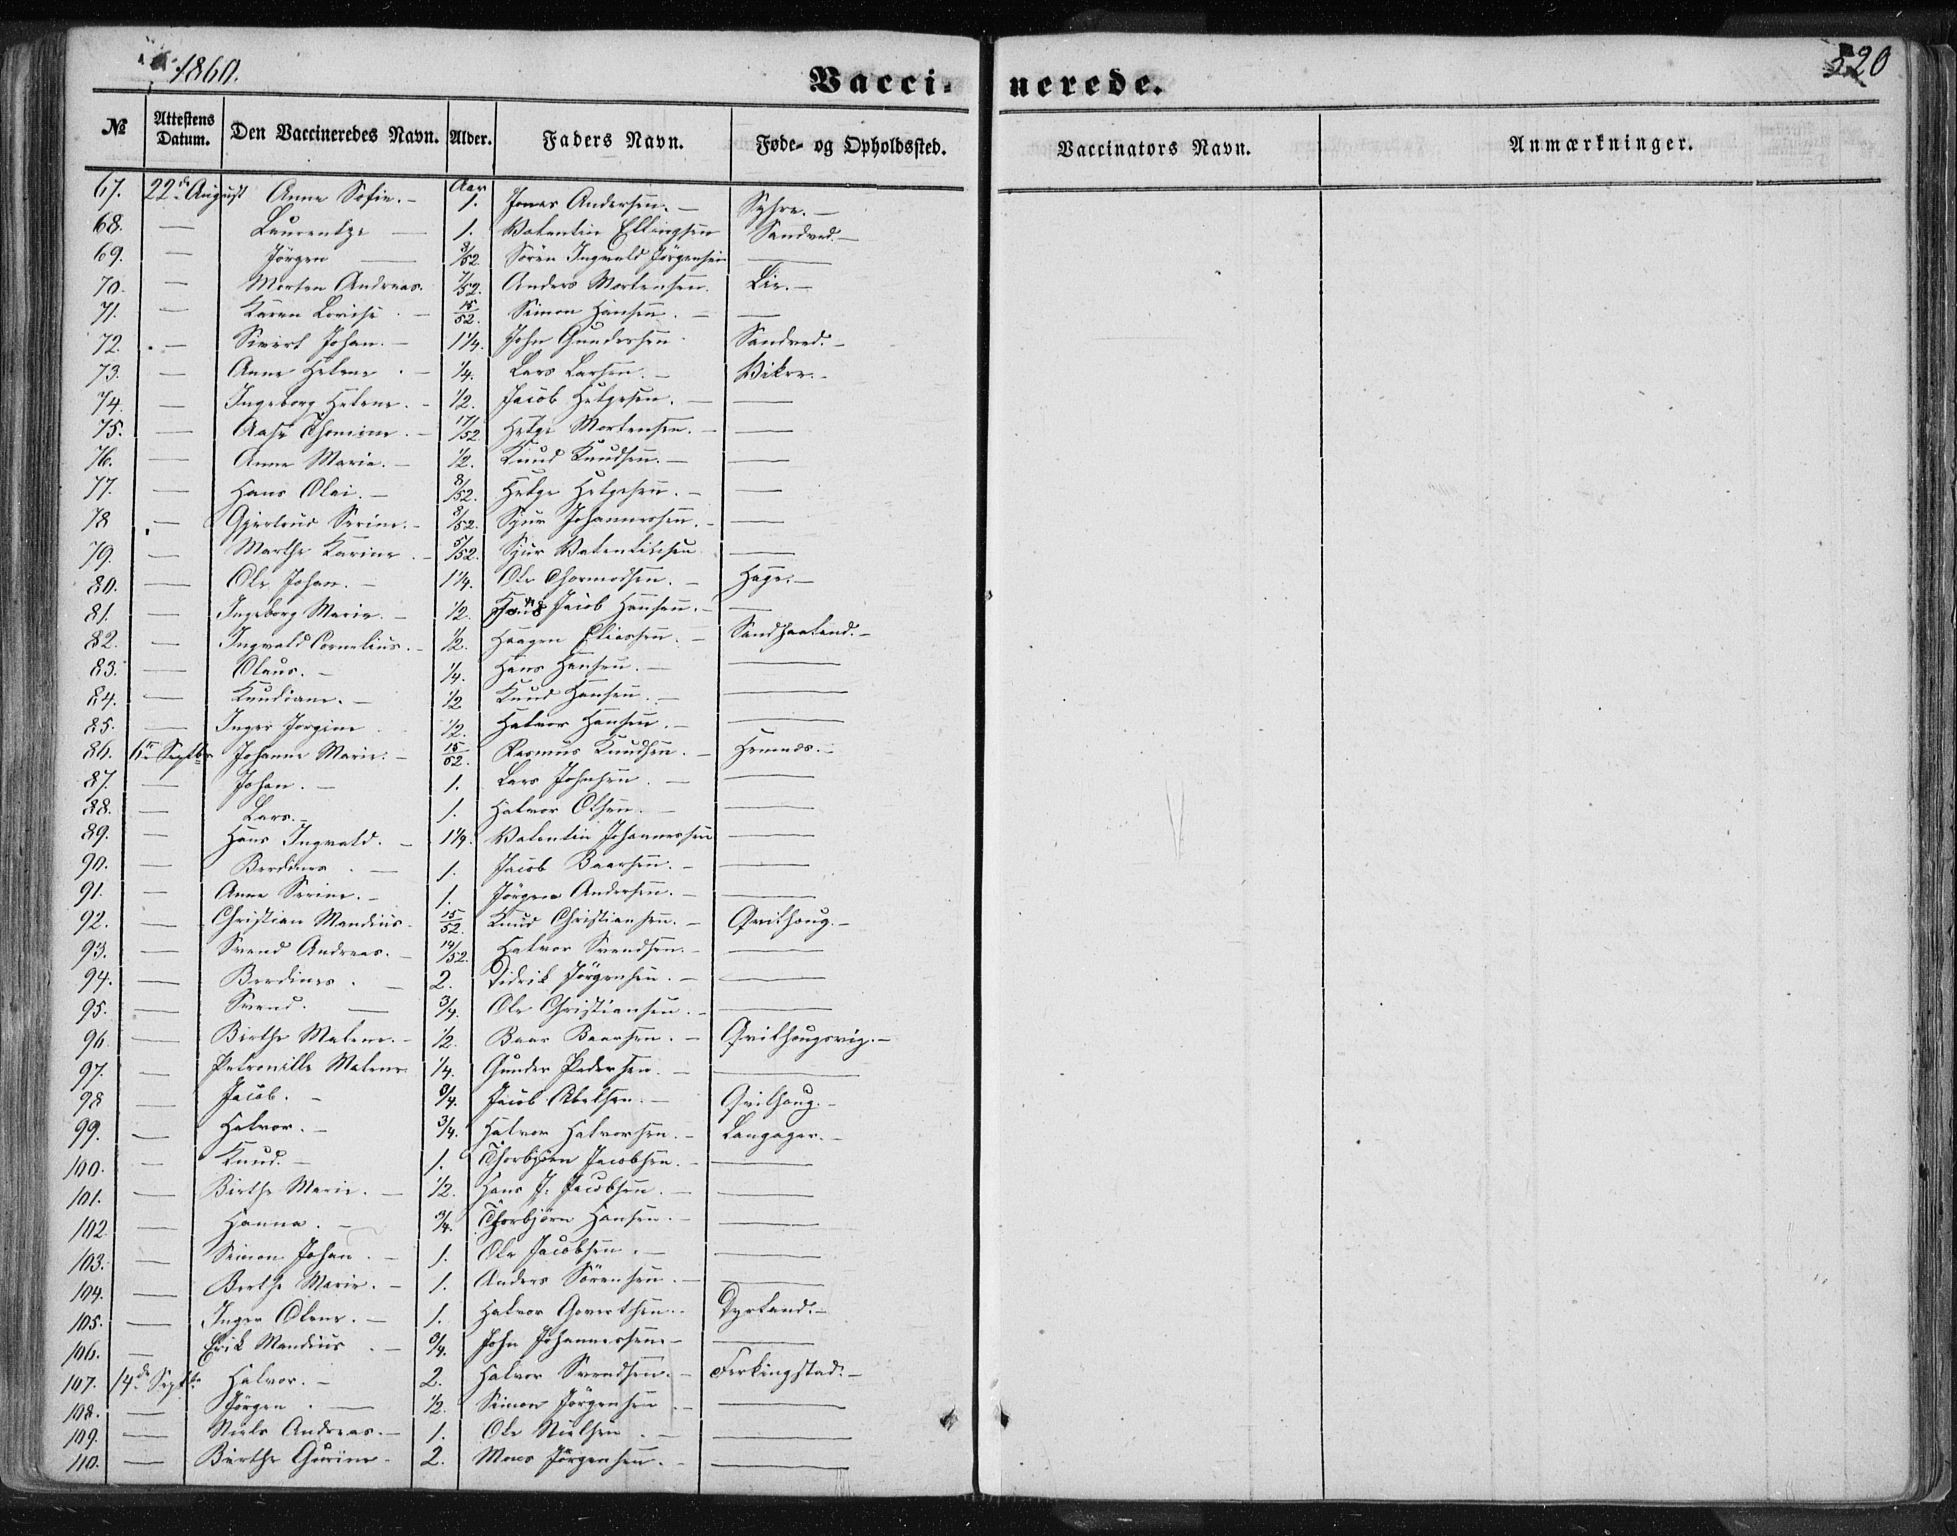 1860.
320
Vaccinerede.
№ Attestens Datum. Den Vaccineredes Navn. Alder. Faders Navn. Føde- og Opholdssted. Vaccinators Navn. Anmærkninger.
67. 22de August Anne Sofie. – Aar 1. Jonas Andersen. – Syhre. –
68. — Laurentze — 1. Valentin Ellingsen Sandved. –
69. — Jörgen — 8/52. Sören Ingvald Jörgensen —
70. — Morten Andreas. 7/52. Anders Mortensen. Lie. –
71. — Karen Lovise. – 15/52. Simon Hansen. – —
72. — Sivert Johan. – 1 1/4. John Gundersen. Sandved. –
73. — Anne Helene. – 1/4. Lars Larsen. – Vikre. –
74. — Ingeborg Helene. – 1/2. Jacob Helgesen. – —
75. — Aase Thomine. – 17/52 Helge Mortensen. – —
76. — Anne Marie. – 1/2. Knud Knudsen. – —
77. — Hans Olai. – 8/52. Helge Helgesen. – —
78 — Gjertrud Serine. – 8/52. Sjur Johannessen. – —
79. — Marthe Karine. – 5/52. Sjur Valentinsen —
80. — Ole Johan. – 1 1/4. Ole Thormodsen. – Hage. –
81. — Ingeborg Marie. – 1/2. Jacob Hansen. – —
82. — Ingvald Cornelius. – 1/2. Haagen Eliassen. – Sandhaaland. –
83. — Olaus. – 1/4. Hans Hansen. – —
84. — Knudiane. – 1/2 Knud Hansen. – —
85. — Inger Jorgine 1/2. Halvor Hansen. – —
86. 6te Septbr Johanne Marie. – 15/52. Rasmus Knudsen. – Hemnæs. –
87. — Johan. – 1. Lars Johnsen. – —
88. — Lars. – 1. Halvor Olsen. – —
89. — Hans Ingvald. – 1 1/4. Valentin Johannessen —
90. — Berdines. – 1. Jacob Baarsen. – —
91. — Anne Serine. – 1. Jörgen Andersen. – —
92. — Christian Mandius. 15/52. Knud Christiansen. – Qvilhaug. –
93. — Svend Andreas. – 14/52. Halvor Svendsen. – —
94. — Berdines. – 2. Didrik Jörgensen. – —
95. — Svend. — 3/4. Ole Christiansen. – —
96. — Birthe Malene. – 1/2. Baar Baarsen. – Qvilhaugsvig. –
97. — Petronille Malene. 1/4. Gunder Pedersen. – —
98 — Jacob. – Jacob Abelsen. – Qvilhaug. –
99. — Halvor. – 3/4. Halvor Halvorsen. – Langager. –
100. — Knud. – 1. Thorbjörn Jacobsen. – —
101. — Birthe Marie. – 1/2. Hans J. Jacobsen. – —
102 — Hanna. – 3/4. Thorbjörn Hansen. – —
103. — Simon Johan. – 1. Ole Jacobsen. – —
104. — Berthe Marie. – 1. Anders Sörensen. – —
105. — Inger Olene. – 1. Halvor Govertsen. – Dyrland. –
106. — Erik Mandius. – John Johannessen – —
107. 14de Septbr Halvor. – 2. Halvor Svendsen. – Ferkingstad. –
108. — Jörgen. — 1/2. Simon Jörgensen – —
109. — Niels Andreas. – 1. Ole Nielsen. – —
110. — Birthe Gurine. 2. Mons Jörgensen. – —